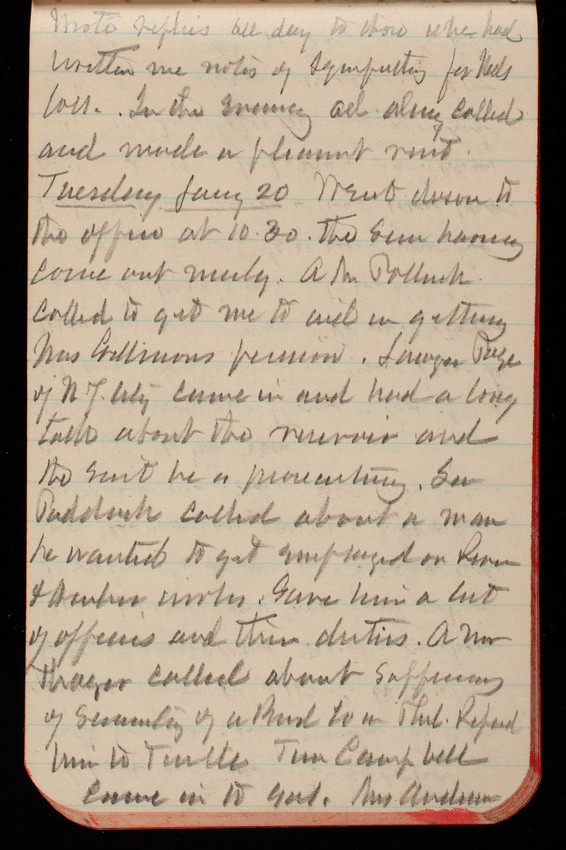 Wrote replies all day to those who had
written me notes of sympathy for Neds
loss. In the evening all along called
and made a pleasant visit.
Tuesday Jany 20 Went down to
the office at 10.30. the Sun having
come out nicely. A Mr Pollock
called to get me to aid in getting
Mrs pension. Lawyer Page
of N Y City came in and had a long
talk about the reservoir and
the suit he is prosecuting. Gen
Paddock called about a man
he wanted to get employed on River
& Harbor works. Gave him a list
of officers and their duties. A Mr
called about sufficiency
of security of a Bond to in Phil. Refered
him to Tim Campbell
came in to see. Mrs Andrew